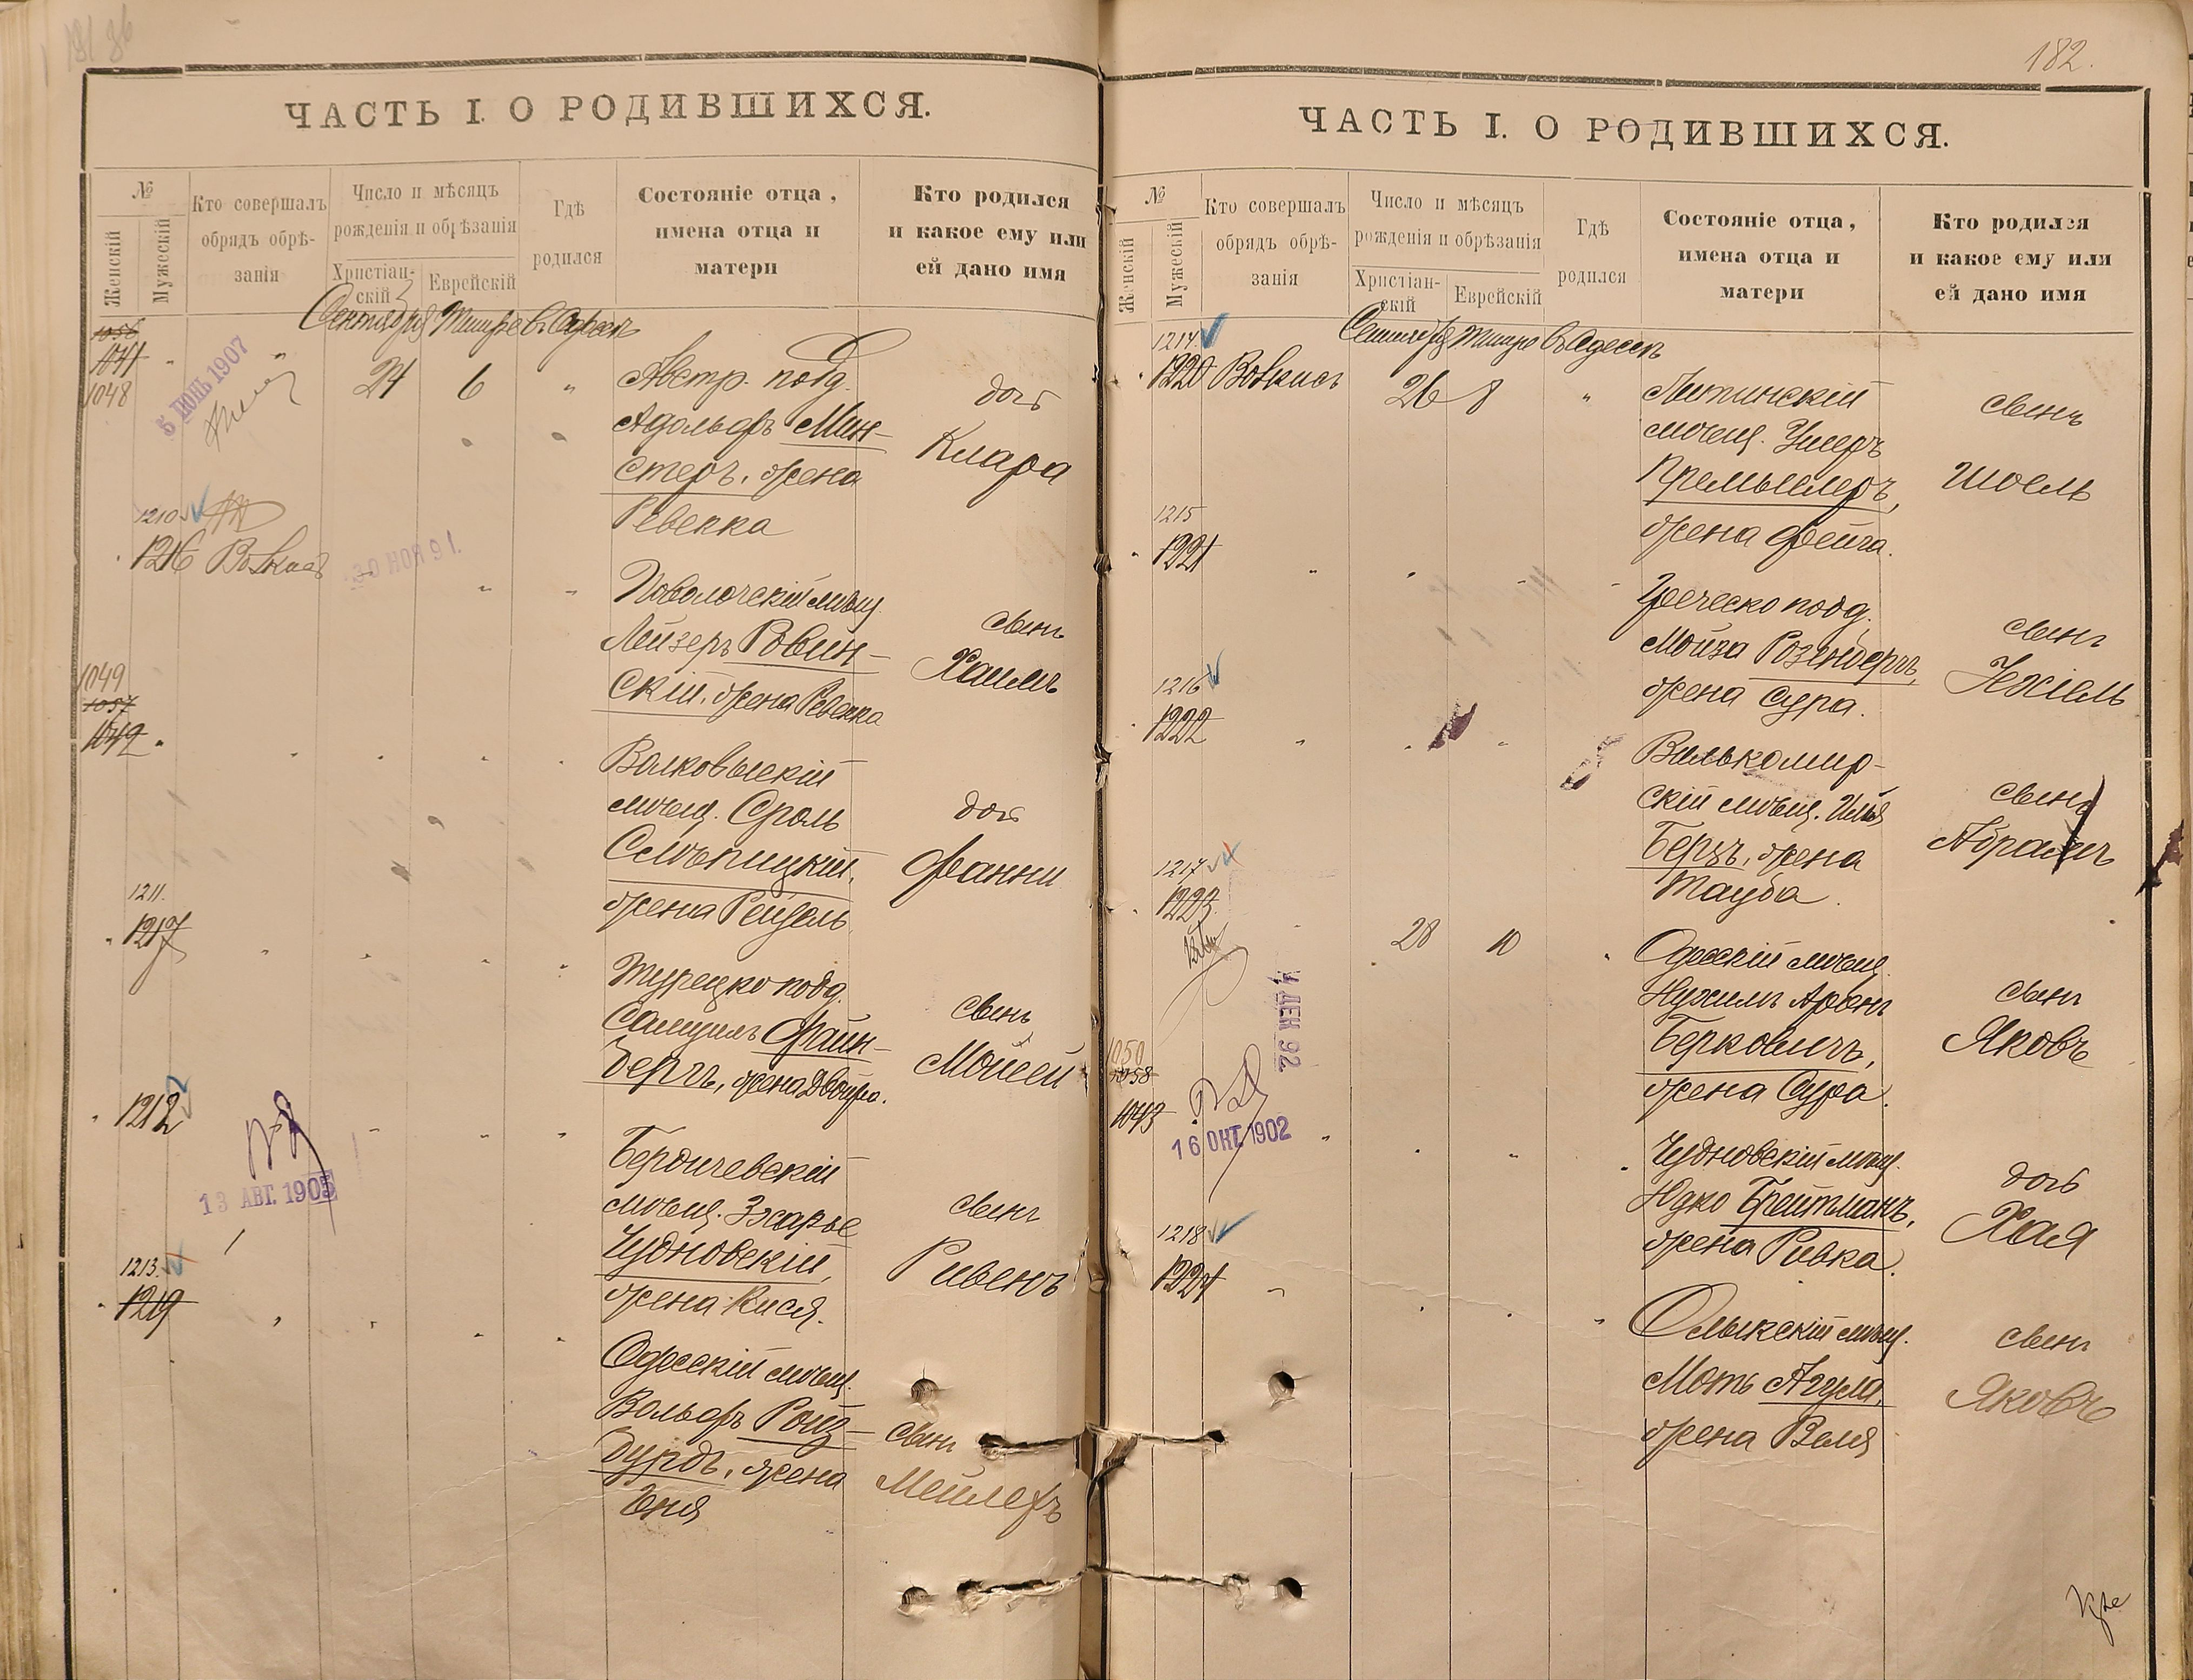 182.
ЧАСТЬ I. О РОДИВШИХСЯ.
№
Женскій
Мужескій
Кто совершалъ
обрядъ обрѣ-
занія
Число и мѣсяцъ
рожденія и обрѣзанія
Христіан-
скій
Еврейскій
Гдѣ
родился
Состояніе отца,
имена отца и
матери
Кто родился
и какое ему или
ей дано имя
Сентября Тишре въ Одессѣ
1056
1041
1048
5 ІЮНЬ 1907
24 6 "
Австр. подд.
Адольфъ Мин-
стеръ, жена
Ревекка
дочь
Клара
1210
1216 Волкисъ
30 НОЯ 91.
Поволочскій мѣщ.
Лейзеръ Ровин-
скій, жена Ревекка
сынъ
Хаимъ
1049
1057
1042
Волковыскій
мѣщ. Сроль
Слѣпицкій,
жена Рейзель
дочь
Фанни
1211.
1217
Турецко подд.
Самуилъ Файн-
бергъ, жена Двойра.
сынъ
Мойсей
1212
13 АВГ. 1903
Бердичевскій
мѣщ. Зхарье
Чудновскій,
жена Кися.
сынъ
Рувенъ
1213.
1219
Одесскій мѣщ.
Вольфъ Ройз-
бурдъ, жена
Эня
сынъ
Мейлехъ
ЧАСТЬ I. О РОДИВШИХСЯ.
№
Женскій
Мужескій
Кто совершалъ
обрядъ обрѣ-
занія
Число и мѣсяцъ
рожденія и обрѣзанія
Христіан-
скій
Еврейскій
Гдѣ
родился
Состояніе отца,
имена отца и
матери
Кто родился
и какое ему или
ей дано имя
Сентября Тишре въ Одессѣ
1214.
1220 Волкисъ 26 8 "
Литинскій
мѣщ. Ушеръ
Премыслеръ,
жена Фейга.
сынъ
Шоель
1215
1221
Греческо подд.
Мойза Розенбергъ,
жена Сура.
сынъ
Іехіель
1216
1222
Вилькомир-
скій мѣщ. Илья
Берзъ, жена
Тауба.
сынъ
Абрамъ
1217
1223
28 10
4 ДЕК 92
Одесскій мѣщ.
Нухимъ Аронъ
Берковичъ,
жена Сура.
сынъ
Яковъ
1050
1058
1043
16 ОКТ. 1902
Чудновскій мѣщ.
Юдко Брейтманъ,
жена Ривка.
дочь
Хая
1218
1224
Олыкскій мѣщ.
Моть Агула,
жена Веля
сынъ
Яковъ